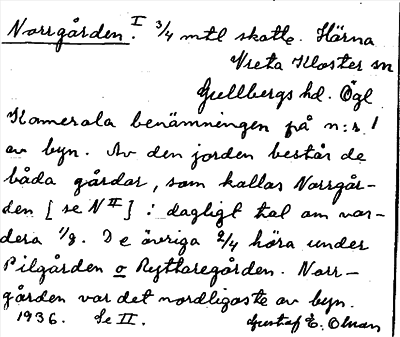 Norrgården. I 3/4 mtl skatte. Härna
Vreta Kloster sn
Gullbergs hd. Ögl
Kamerala benämningen på n:r 1
av byn. Av den jorden består de
båda gårdar, som kallas Norrgår-
den [se N II] i dagligt tal om var-
dera 1/8. De övriga 2/4 höra under
Pilgården o Ryttaregården. Norr-
gården var det nordligaste av byn.
1936. Se II. Gustaf E. Olman